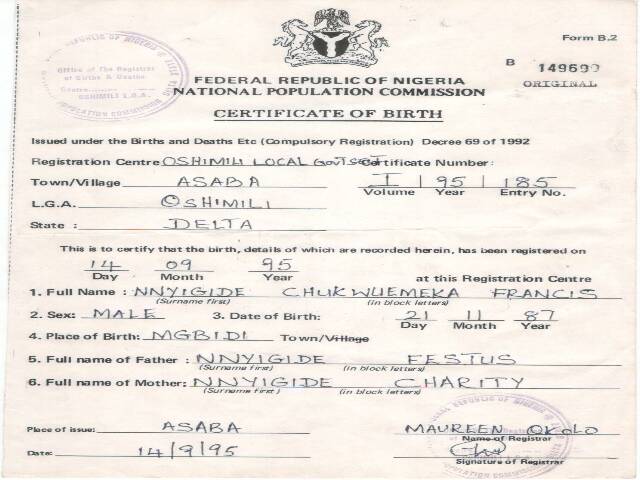 Form B.2
B 149699
ORIGINAL
Office of The Registrar
of Births & Deaths
Centre
OSHIMILI L.G.A.
FEDERAL REPUBLIC OF NIGERIA
NATIONAL POPULATION COMMISSION
CERTIFICATE OF BIRTH
Issued under the Births and Deaths Etc (Compulsory Registration) Decree 69 of 1992
Registration Centre OSHIMILI LOCAL GOVT Certificate Number:
Town/Village ASABA I 95 185
Volume Year Entry No.
L.G.A. OSHIMILI
State : DELTA
This is to certify that the birth, details of which are recorded herein, has been registered on
14 09 95
Day Month Year at this Registration Centre
1. Full Name : NNYIGIDE CHUKWUEMEKA FRANCIS
(Surname first) (in block letters)
2. Sex: MALE 3. Date of Birth: 21 11 87
Day Month Year
4. Place of Birth: MGBIDI Town/Village
5. Full name of Father : NNYIGIDE FESTUS
(Surname first) (in block letters)
6. Full name of Mother: NNYIGIDE CHARITY
(Surname first) (in block letters)
Place of issue: ASABA MAUREEN OKOLO
Name of Registrar
Date: 14/9/95
Signature of Registrar